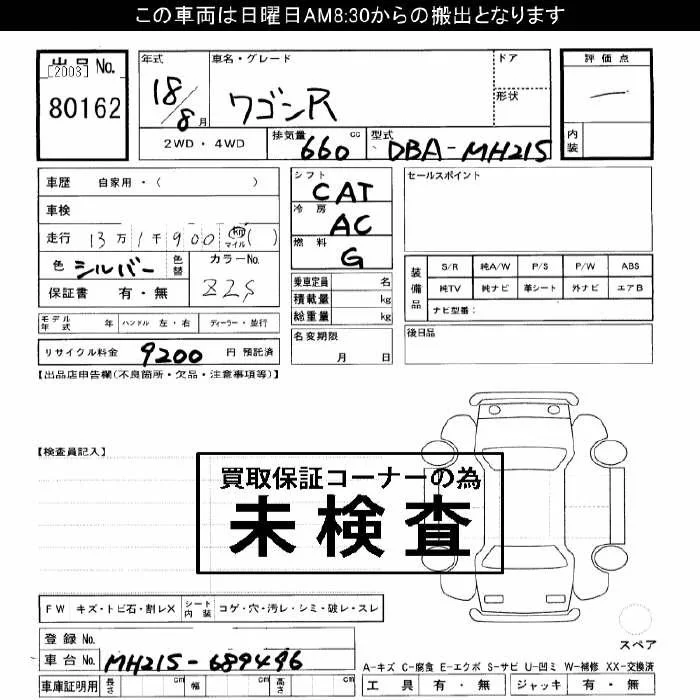 この車両は日曜日AM8:30からの搬出となります
出品 No.
[2003]
80162
年式
18/8月
車名・グレード
ワゴンR
ドア
形状
評価点
―
内装
2WD・4WD
排気量 660 cc
型式 DBA-MH21S
車歴 自家用・( )
車検
走行 13万1千900 km マイル ( )
色 シルバー 色替
カラーNo. Z2S
保証書 有・無
シフト CAT
冷房 AC
燃料 G
乗車定員 名
積載量 kg
総重量 kg
名変期限 月 日
セールスポイント
装備品
S/R 純A/W P/S P/W ABS
純TV 純ナビ 革シート 外ナビ エアB
ナビ型番:
後日品
モデル年式 年 ハンドル 左・右 ディーラー・並行
リサイクル料金 9200 円 預託済
【出品店申告欄(不良箇所・欠品・注意事項等)】
【検査員記入】
買取保証コーナーの為
未検査
FW キズ・トビ石・割レX シート内装 コゲ・穴・汚レ・シミ・破レ・スレ
登録 No.
車台 No. MH21S-689496
車庫証明用 長さ cm 幅 cm 高さ cm
スペア
A-キズ C-腐食 E-エクボ S-サビ U-凹ミ W-補修 XX-交換済
工具 有・無 ジャッキ 有・無